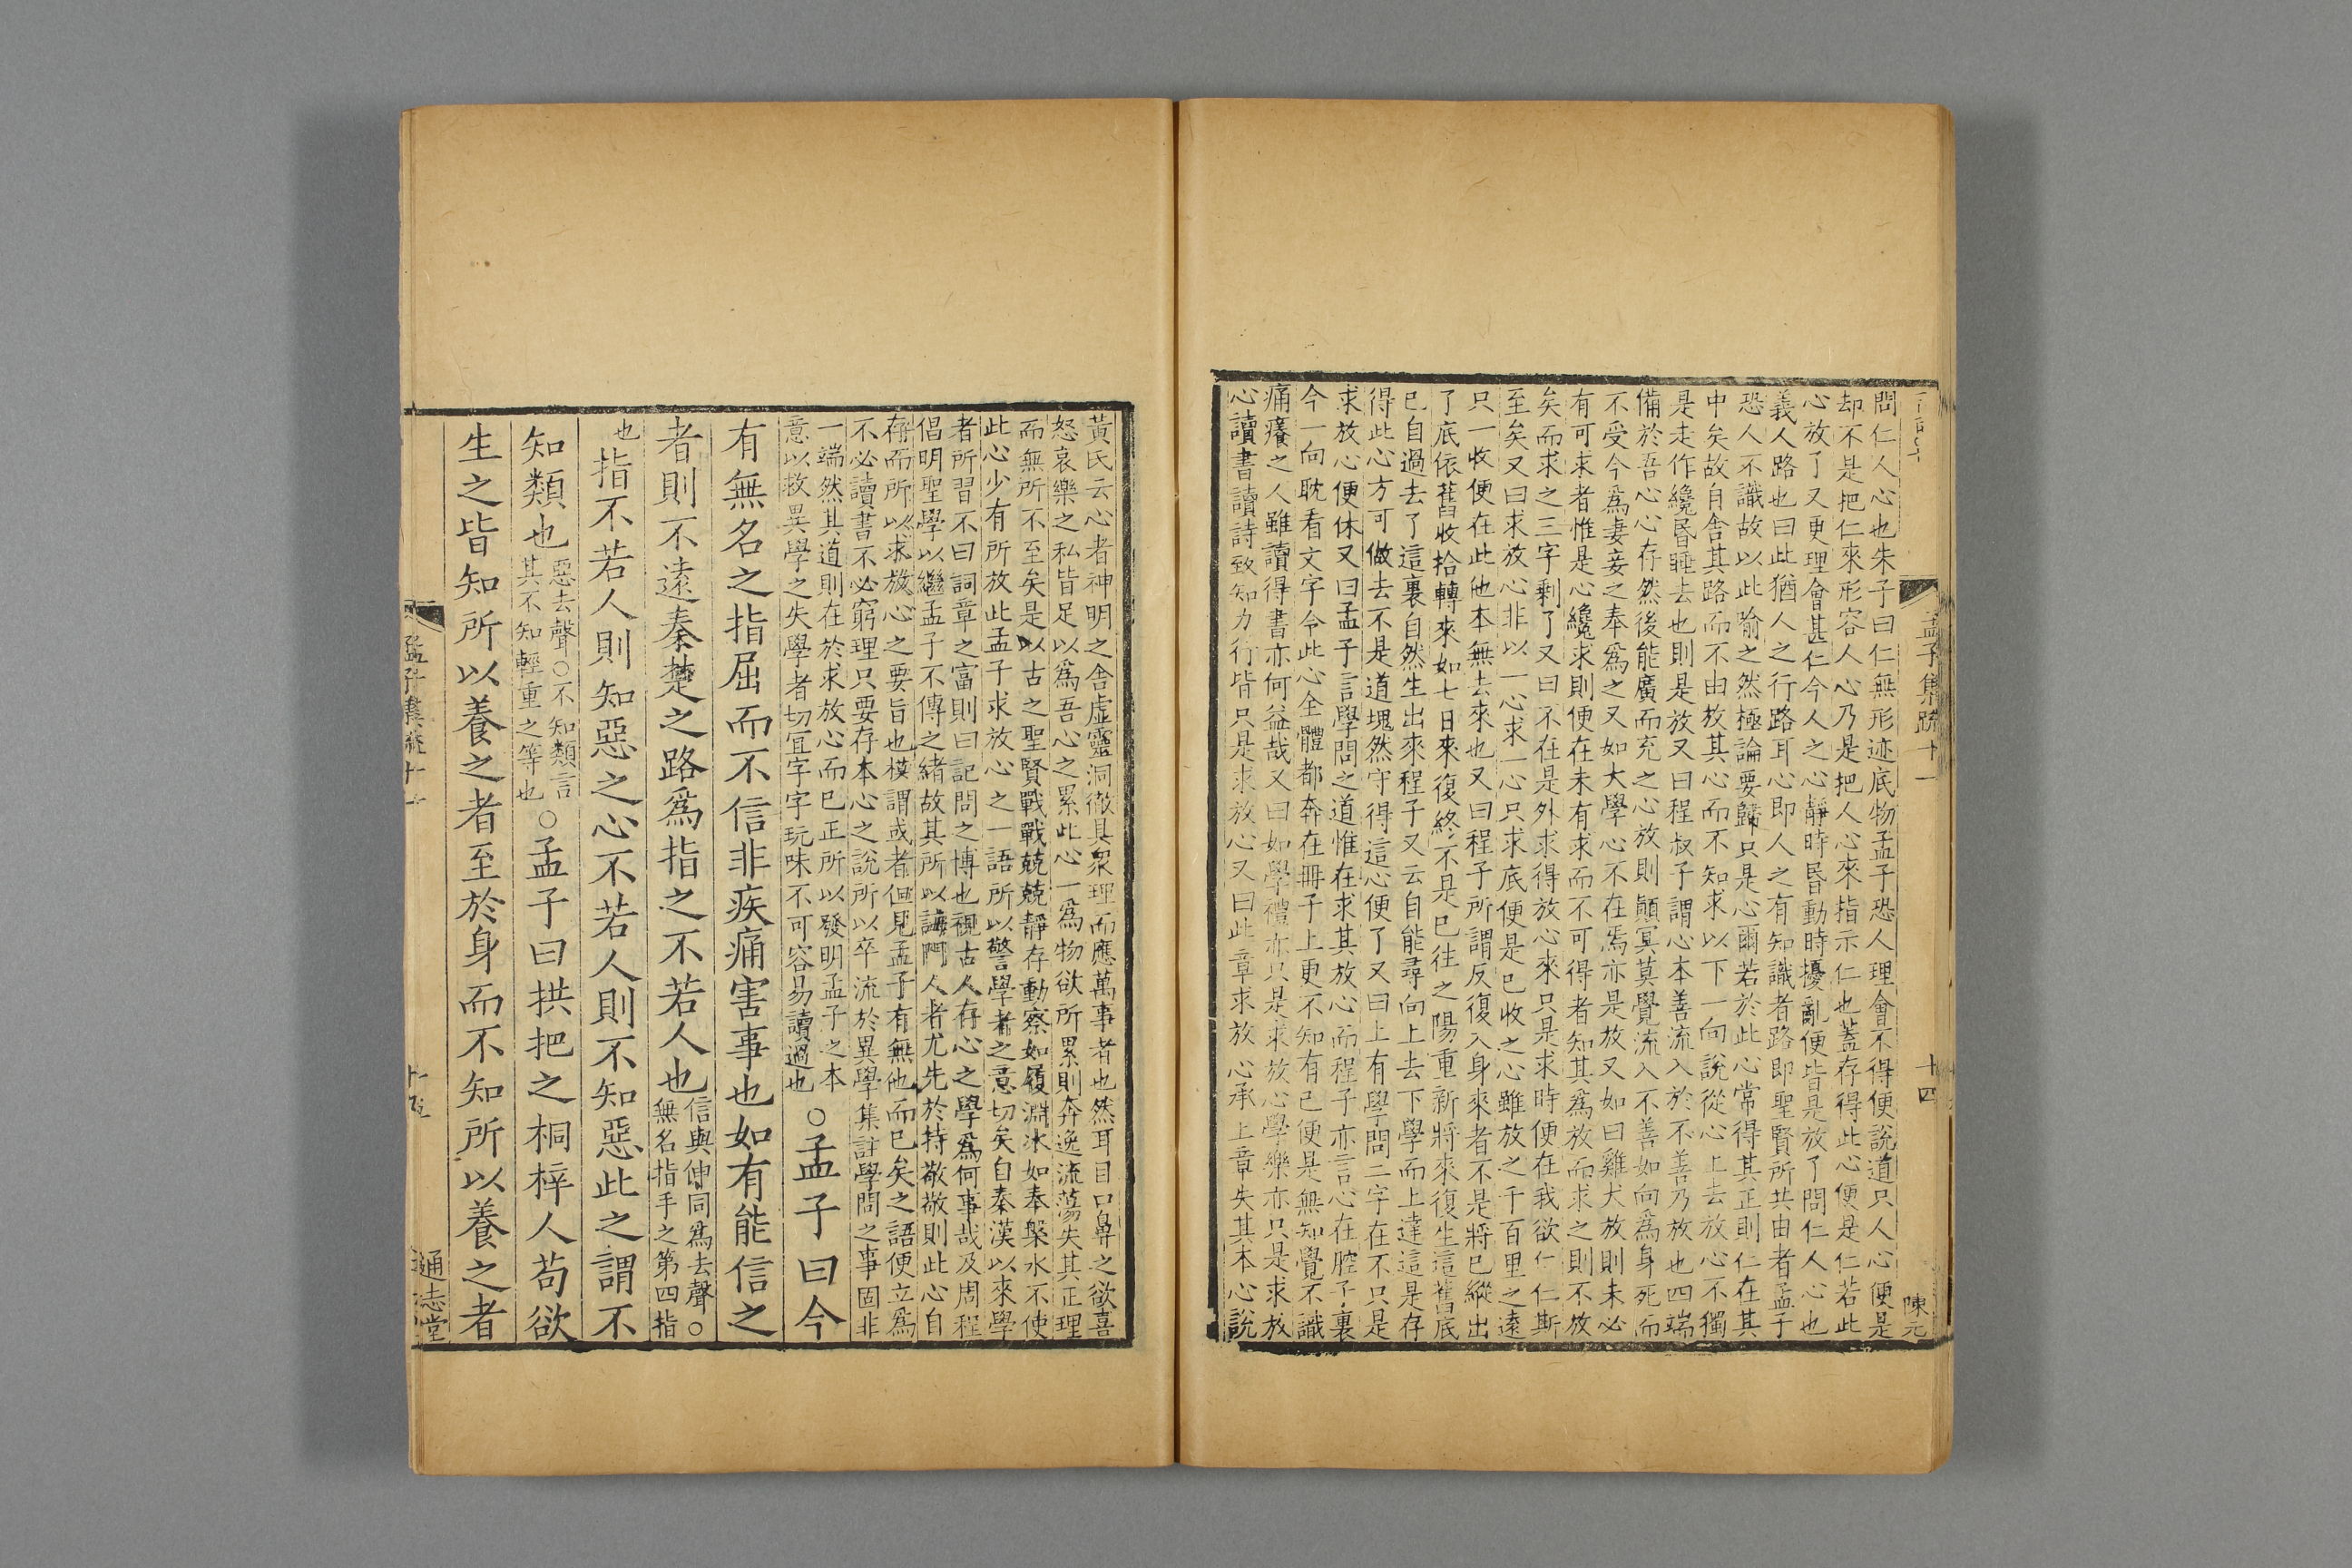 孟子集疏十一
十四
陳元
問仁人心也朱子曰仁無形迹底物孟子恐人理會不得便說道只人心便是
却不是把仁來形容人心乃是把人心來指示仁也蓋存得此心便是仁若此
心放了又更理會甚仁今人之心靜時昏動時擾亂便皆是放了問仁人心也
義人路也曰此猶人之行路耳心即人之有知識者路即聖賢所共由者孟子
恐人不識故以此喻之然極論要歸只是心爾若於此心常得其正則仁在其
中矣故自舍其路而不由放其心而不知求以下一向說從心上去放心不獨
是走作纔昏睡去也則是放又曰程叔子謂心本善流入於不善乃放也四端
備於吾心心存然後能廣而充之心放則顛冥莫覺流入不善如向為身死而
不受今為妻妾之奉為之又如大學心不在焉亦是放又如曰雞犬放則未必
有可求者惟是心纔求則便在未有求而不可得者知其為放而求之則不放
矣而求之三字剩了又曰不在是外求得放心來只是求時便在我欲仁仁斯
至矣又曰求放心非以一心求一心只求底便是已收之心雖放之千百里之遠
只一收便在此他本無去來也又曰程子所謂反復入身來者不是將已縱出
了底依舊收拾轉來如七日來復終不是已往之陽重新將來復生這舊底
已自過去了這裏自然生出來程子又云自能尋向上去下學而上達這是存
得此心方可做去不是道塊然守得這心便了又曰上有學問二字在不只是
求放心便休又曰孟子言學問之道惟在求其放心而程子亦言心在腔子裏
今一向耽看文字令此心全體都奔在冊子上更不知有已便是無知覺不識
痛癢之人雖讀得書亦何益哉又曰如學禮亦只是求放心學樂亦只是求放
心讀書讀詩致知力行皆只是求放心又曰此章求放心承上章失其本心說
黃氏云心者神明之舍虛靈洞徹具衆理而應萬事者也然耳目口鼻之欲喜
怒哀樂之私皆足以為吾心之累此心一為物欲所累則奔逸流蕩失其正理
而無所不至矣是以古之聖賢戰戰兢兢靜存動察如履淵冰如奉槃水不使
此心少有所放此孟子求放心之一語所以警學者之意切矣自秦漢以來學
者所習不曰詞章之富則曰記問之博也視古人存心之學為何事哉及周程
倡明聖學以繼孟子不傳之緒故其所以誨門人者尤先於持敬敬則此心自
存而所以求放心之要旨也模謂或者但見孟子有無他而已矣之語便立為
不必讀書不必窮理只要存本心之說所以卒流於異學集註學問之事固非
一端然其道則在於求放心而已正所以發明孟子之本
意以救異學之失學者切宜字字玩味不可容易讀過也
○孟子曰今
有無名之指屈而不信非疾痛害事也如有能信之
者則不遠秦楚之路為指之不若人也
信與伸同為去聲○
無名指手之第四指
也
指不若人則知惡之心不若人則不知惡此之謂不
知類也
惡去聲○不知類言
其不知輕重之等也
○孟子曰拱把之桐梓人苟欲
生之皆知所以養之者至於身而不知所以養之者
通志堂